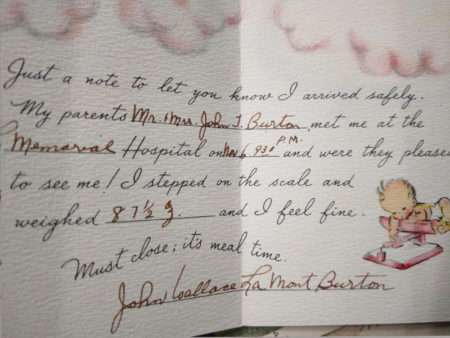 Just a note to let you know I arrived safely.
My parents Mr. & Mrs. John T. Burton, met me at the
Memorial Hospital on Nov 6 930 P.M. and were they pleased
to see me! I stepped on the scale and
weighed 8 7½ and I feel fine.
Must close; it's meal time.
John Wallace La Mont Burton